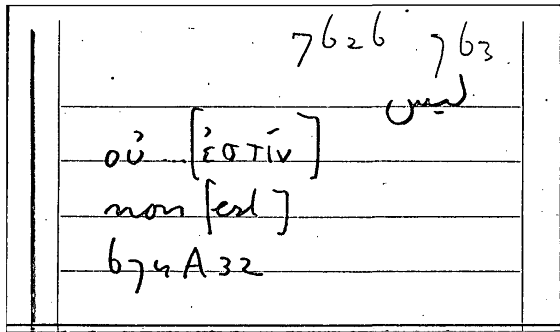 7b26 7b3
ليس
οὐ [ἐστίν]
non [est]
674 A 32